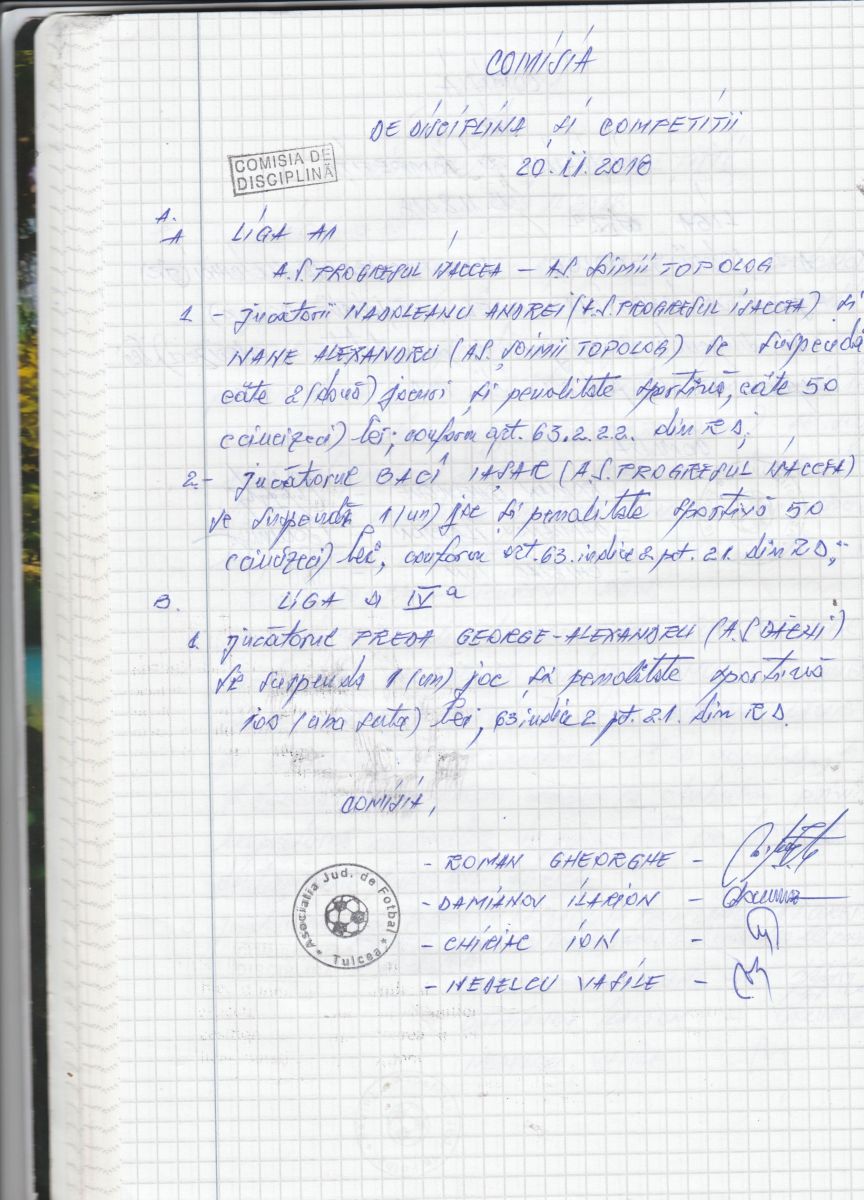 COMISIA
DE DISCIPLINA SI COMPETITII
COMISIA DE
DISCIPLINĂ
20.11.2018
A.
A LIGA A1
A.S. PROGRESUL ISACCEA – AS SOIMII TOPOLOG
1 - jucătorii NADOLEANU ANDREI (A.S. PROGRESUL ISACCEA) si
NANE ALEXANDRU (AS, SOIMII TOPOLOG) se suspendă
câte 2 (două) jocuri si penalitate sportivă, câte 50
(cincizeci) lei; conform art. 63.2.2.2. din RD;
2.- jucătorul BACI IASAR (A.S. PROGRESUL ISACCEA)
se suspendă 1 (un) joc si penalitate sportivă 50
(cincizeci) lei, conform art. 63. indice 2. pt. 21. din RD;
B. LIGA A IV a
1. jucătorul PREDA GEORGE-ALEXANDRU (A.S. DĂENI)
se suspenda 1 (un) joc si penalitate sportivă
100 (una suta) lei, 63 indice 2 pt. 21. din RD.
COMISIA,
- ROMAN GHEORGHE -
- DAMIANOV ILARION -
- CHIRIAC ION -
- NEDELCU VASILE -
Asociatia Jud. de Fotbal
* Tulcea *